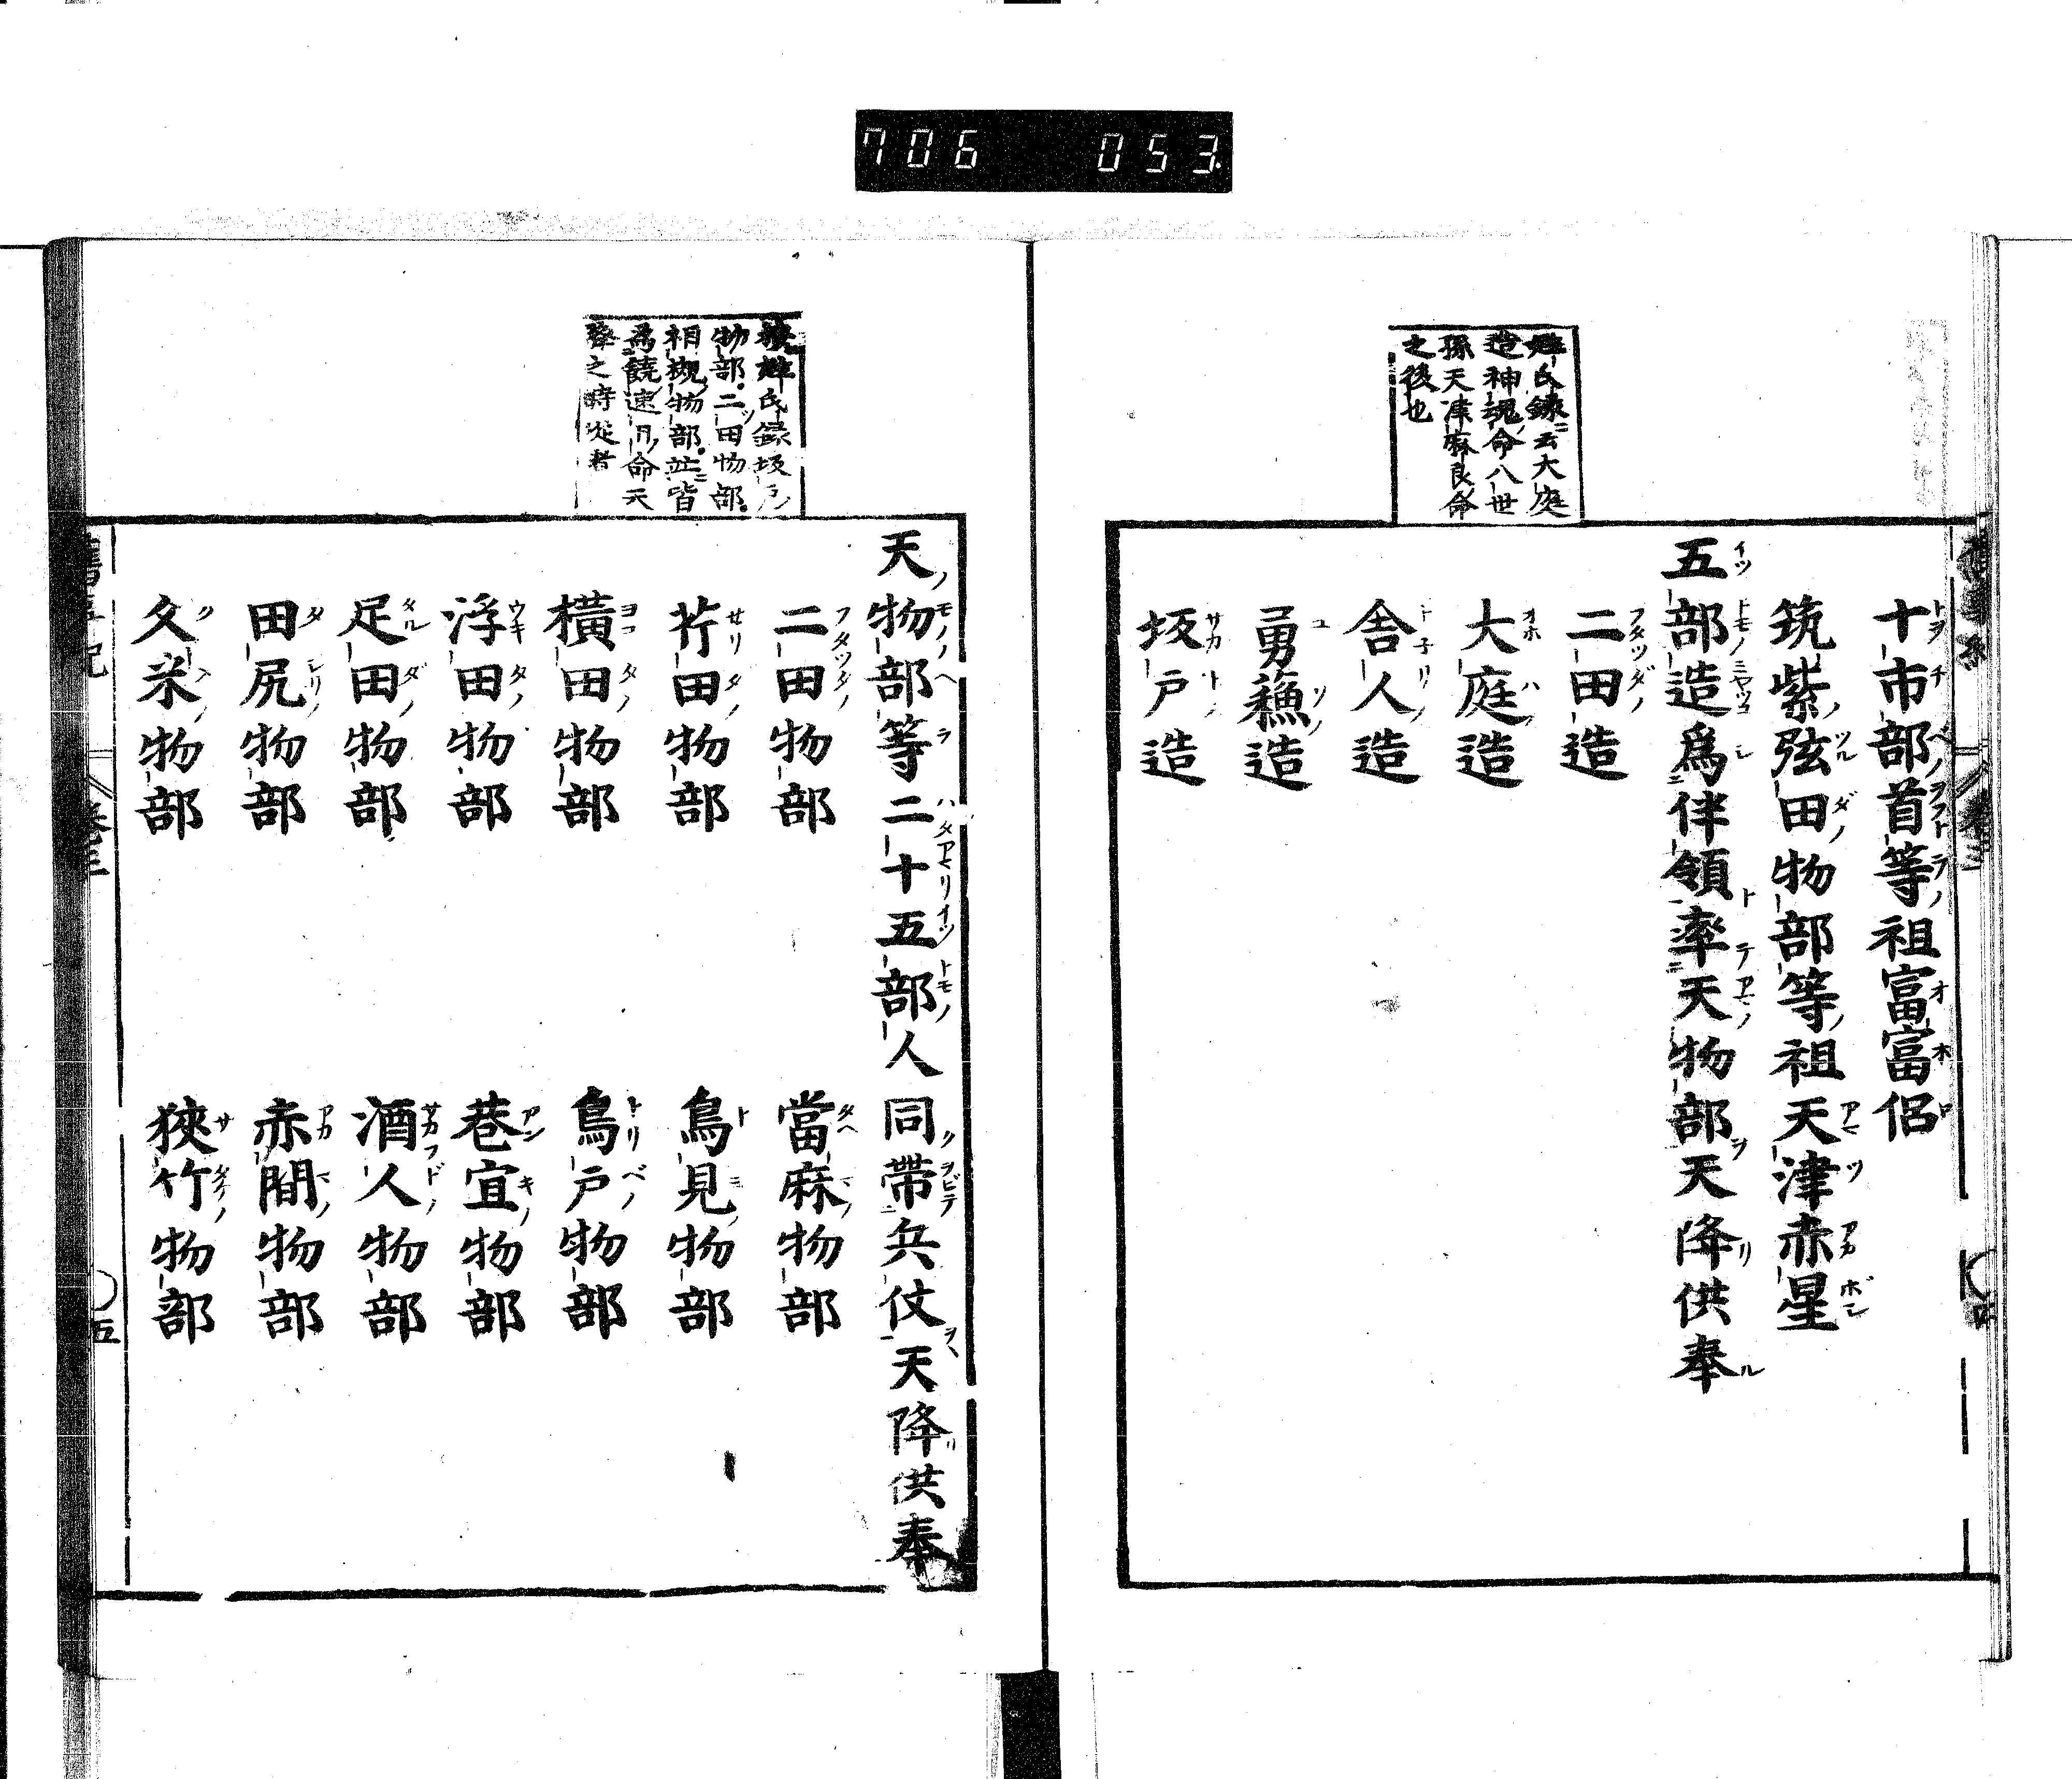 706 053
姓氏録云大庭
造神魂命八世
孫天津麻良命
之後也
十市部首等祖富富侶
筑紫弦田物部等祖天津赤星
五部造爲伴領率天物部天降供奉
二田造
大庭造
舎人造
勇蘓造
坂戸造
按姓氏録坂戸
物部二田物部
相槻物部並皆
爲饒速日命天
降之時従者
天物部等二十五部人同帶兵仗天降供奉
二田物部 當麻物部
芹田物部 鳥見物部
横田物部 鳥戸物部
浮田物部 巷宜物部
足田物部 酒人物部
田尻物部 赤間物部
久米物部 狹竹物部
舊事紀 卷三 五